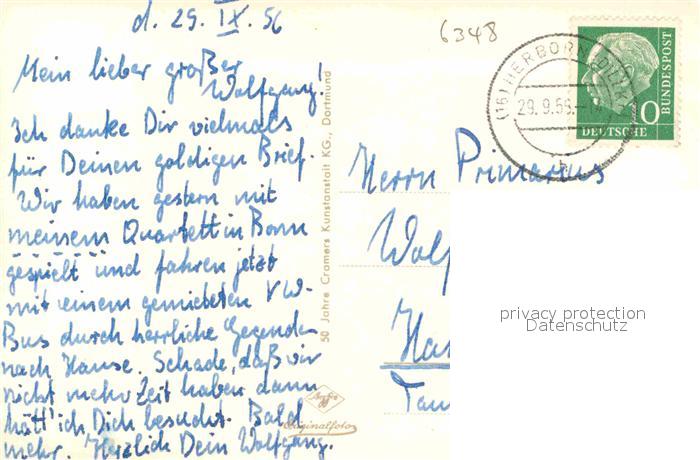 d. 29. IX. 56
6348
Mein lieber großer
Wolfgang!
Ich danke Dir vielmals
für Deinen goldigen Brief.
Wir haben gestern mit
meinem Quartett in Bonn
gespielt und fahren jetzt
mit einem gemieteten VW-
Bus durch herrliche Gegenden
nach Hause. Schade, daß wir
nicht mehr Zeit haben, dann
hätt' ich Dich besucht. Bald
mehr. Herzlich Dein Wolfgang.
50 Jahre Cramers Kunstanstalt KG., Dortmund
Originalfoto
(16) HERBORN (DILLKR)
29.9.56.-
10
DEUTSCHE
BUNDESPOST
Herrn Primarius
Wolf
Ha
Tau
privacy protection
Datenschutz